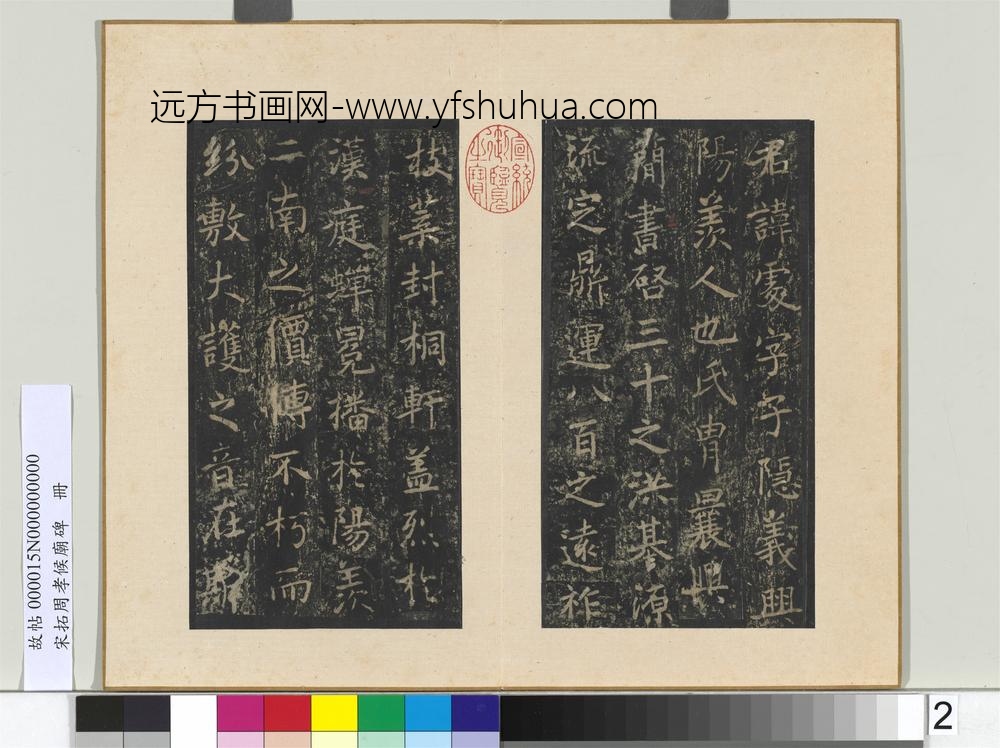 远方书画网-www.yfshuhua.com
君諱處字子隱義興
陽羨人也氏胄曩興
簡書啓三十之洪基源
流定鼎運八百之遠祚
枝葉封桐軒盖烈於
漢庭蟬冕播於陽羨
二南之價傳不朽而
紛敷大護之音在
宣統御覽之寶
故帖000015N000000000
宋拓周孝候廟碑 冊
2